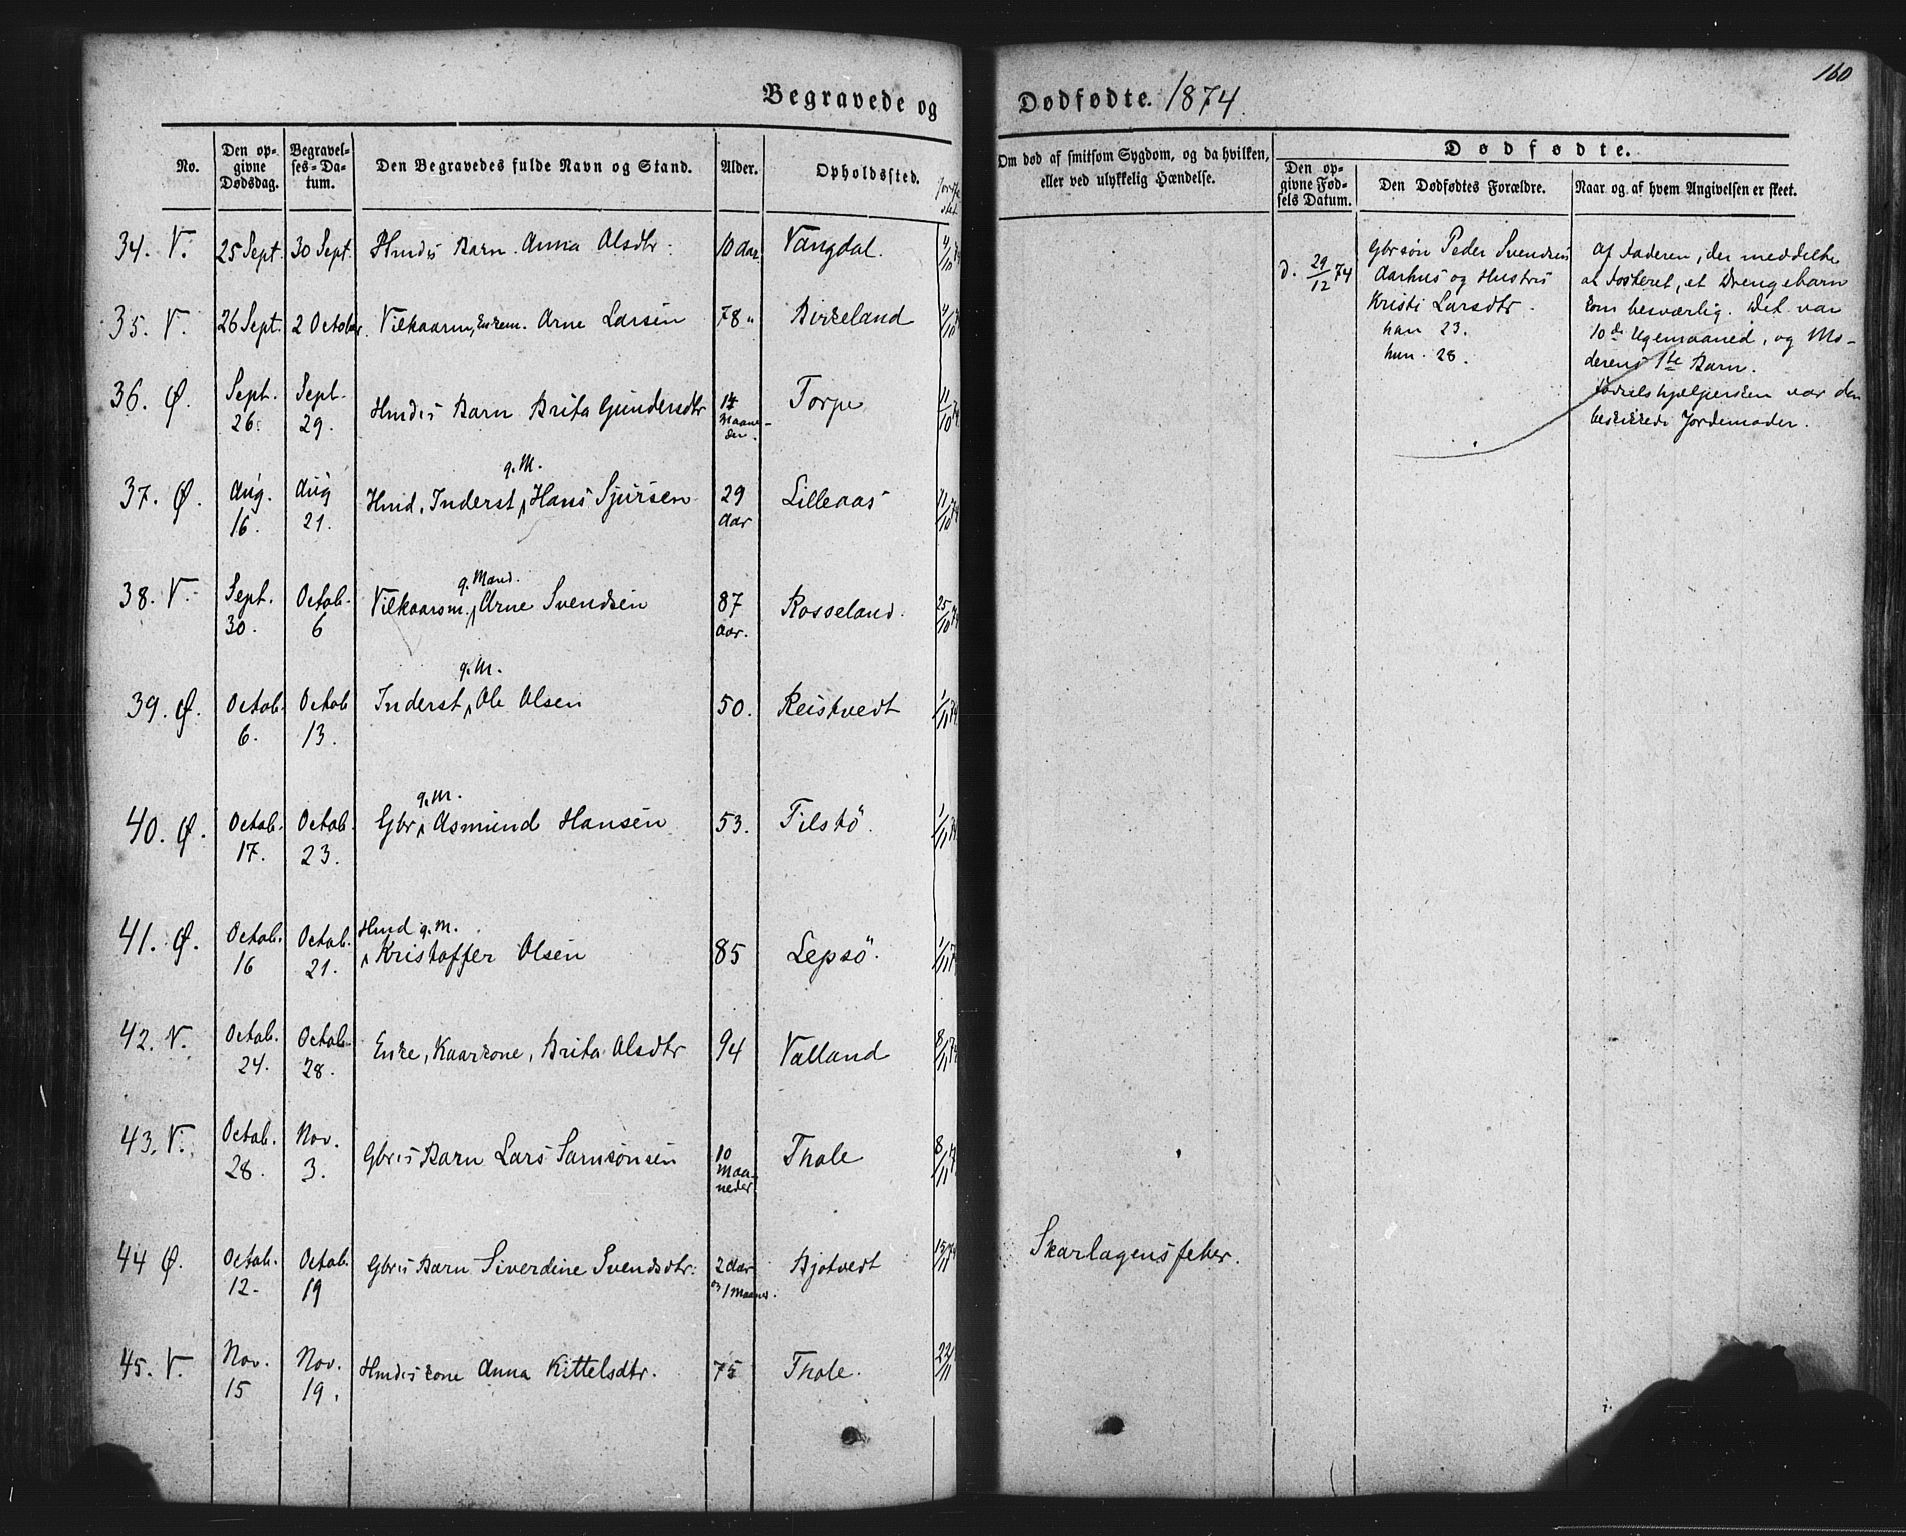 160
Begravede og Dødfødte. 1874.
No.
Den opgivne Dødsdag.
Begravelses-Datum.
Den Begravedes fulde Navn og Stand.
Alder.
Opholdssted.
Om død af smitsom Sygdom, og da hvilken,
eller ved ulykkelig Hændelse.
Dødfødte.
Den opgivne Fødsels Datum.
Den Dødfødtes Forældre.
Naar og af hvem Angivelsen er skeet.
34. V. 25 Sept. 30 Sept. Hmds Barn Anna Olsdtr. 10 Vangdal. 4/10
35. V. 26 Sept. 2 October. Vilkaarm, Enkem. Arne Larsen 78 " Birkeland 4/10
36. Ø. Sept. 26. Sept. 29. Hmds Barn Brita Gundersdtr Maaneder. Torpe 11/10 74
37. Ø. Aug. 16. Aug 21. Hmd, Inderst, g. M. Hans Sjursen 29 Aar Lilleaas 11/10 74
38. V. Sept. 30. Octob. 6 Vilkaarsm. g. Mand. Arne Svendsen 87 aar. Rosseland. 25/10 74
39. Ø. Octob. 6. Octob 13. Inderst, g. M. Ole Olsen 50. Reistvedt 1/11 74
40. Ø. Octob. 17. Octob. 23. Gbr, g. M. Asmund Hansen 53. Tilstø. 1/11 74
41. Ø. Octob. 16 Octob. 21. Hmd g. M. Kristoffer Olsen 85 Lepsø. 1/11 74
42. V. Octob. 24. Octob. 28. Enke, Kaarkone, Brita Olsdtr 94 Valland 8/11 74
43. V. Octob. 28. Nov. 3. Gbrs Barn Lars Samsonsen 10 Maaneder Thole 8/11
44 Ø. Octob. 12. Octob. 19 Gbrs Barn Siverdine Svendsdtr. 2 Aar og 1 Maaned. Bjotvedt 15/11 74 Skarlagensfeber.
45. V. Nov. 15 Nov. 19. Hmdskone Anna Kittelsdtr. 75 Thole. 22/11
d. 29/12 74
Gbrsøn Peder Svendsen
Aarhus og Hustru
Kristi Larsdtr.
han 23.
hun. 28.
Af Faderen, der meddelte
at Fosteret, et Drengebarn
kom besværlig. Det var
10de Ugemaaned, og Mo-
derens 1ste Barn.
Fødselshjælpersken var den
beskikkede Jordemoder.